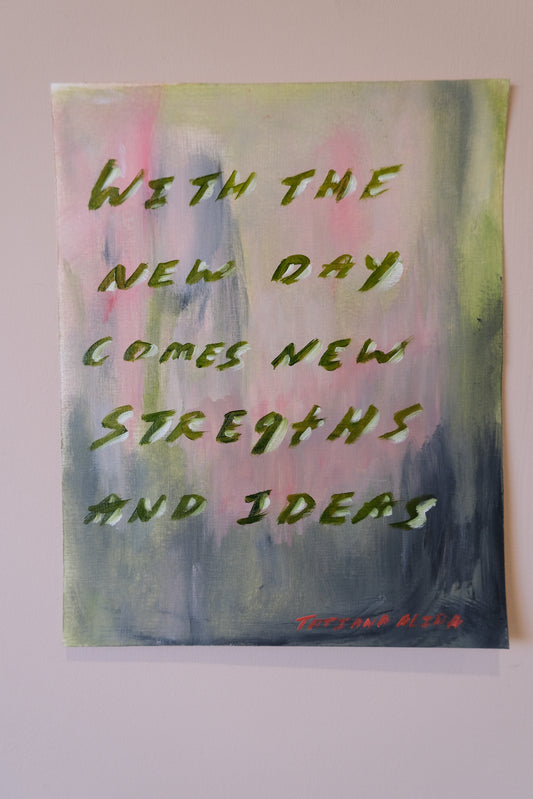 WITH THE
NEW DAY
COMES NEW
STREGTHS
AND IDEAS
TATIANA ALIDA